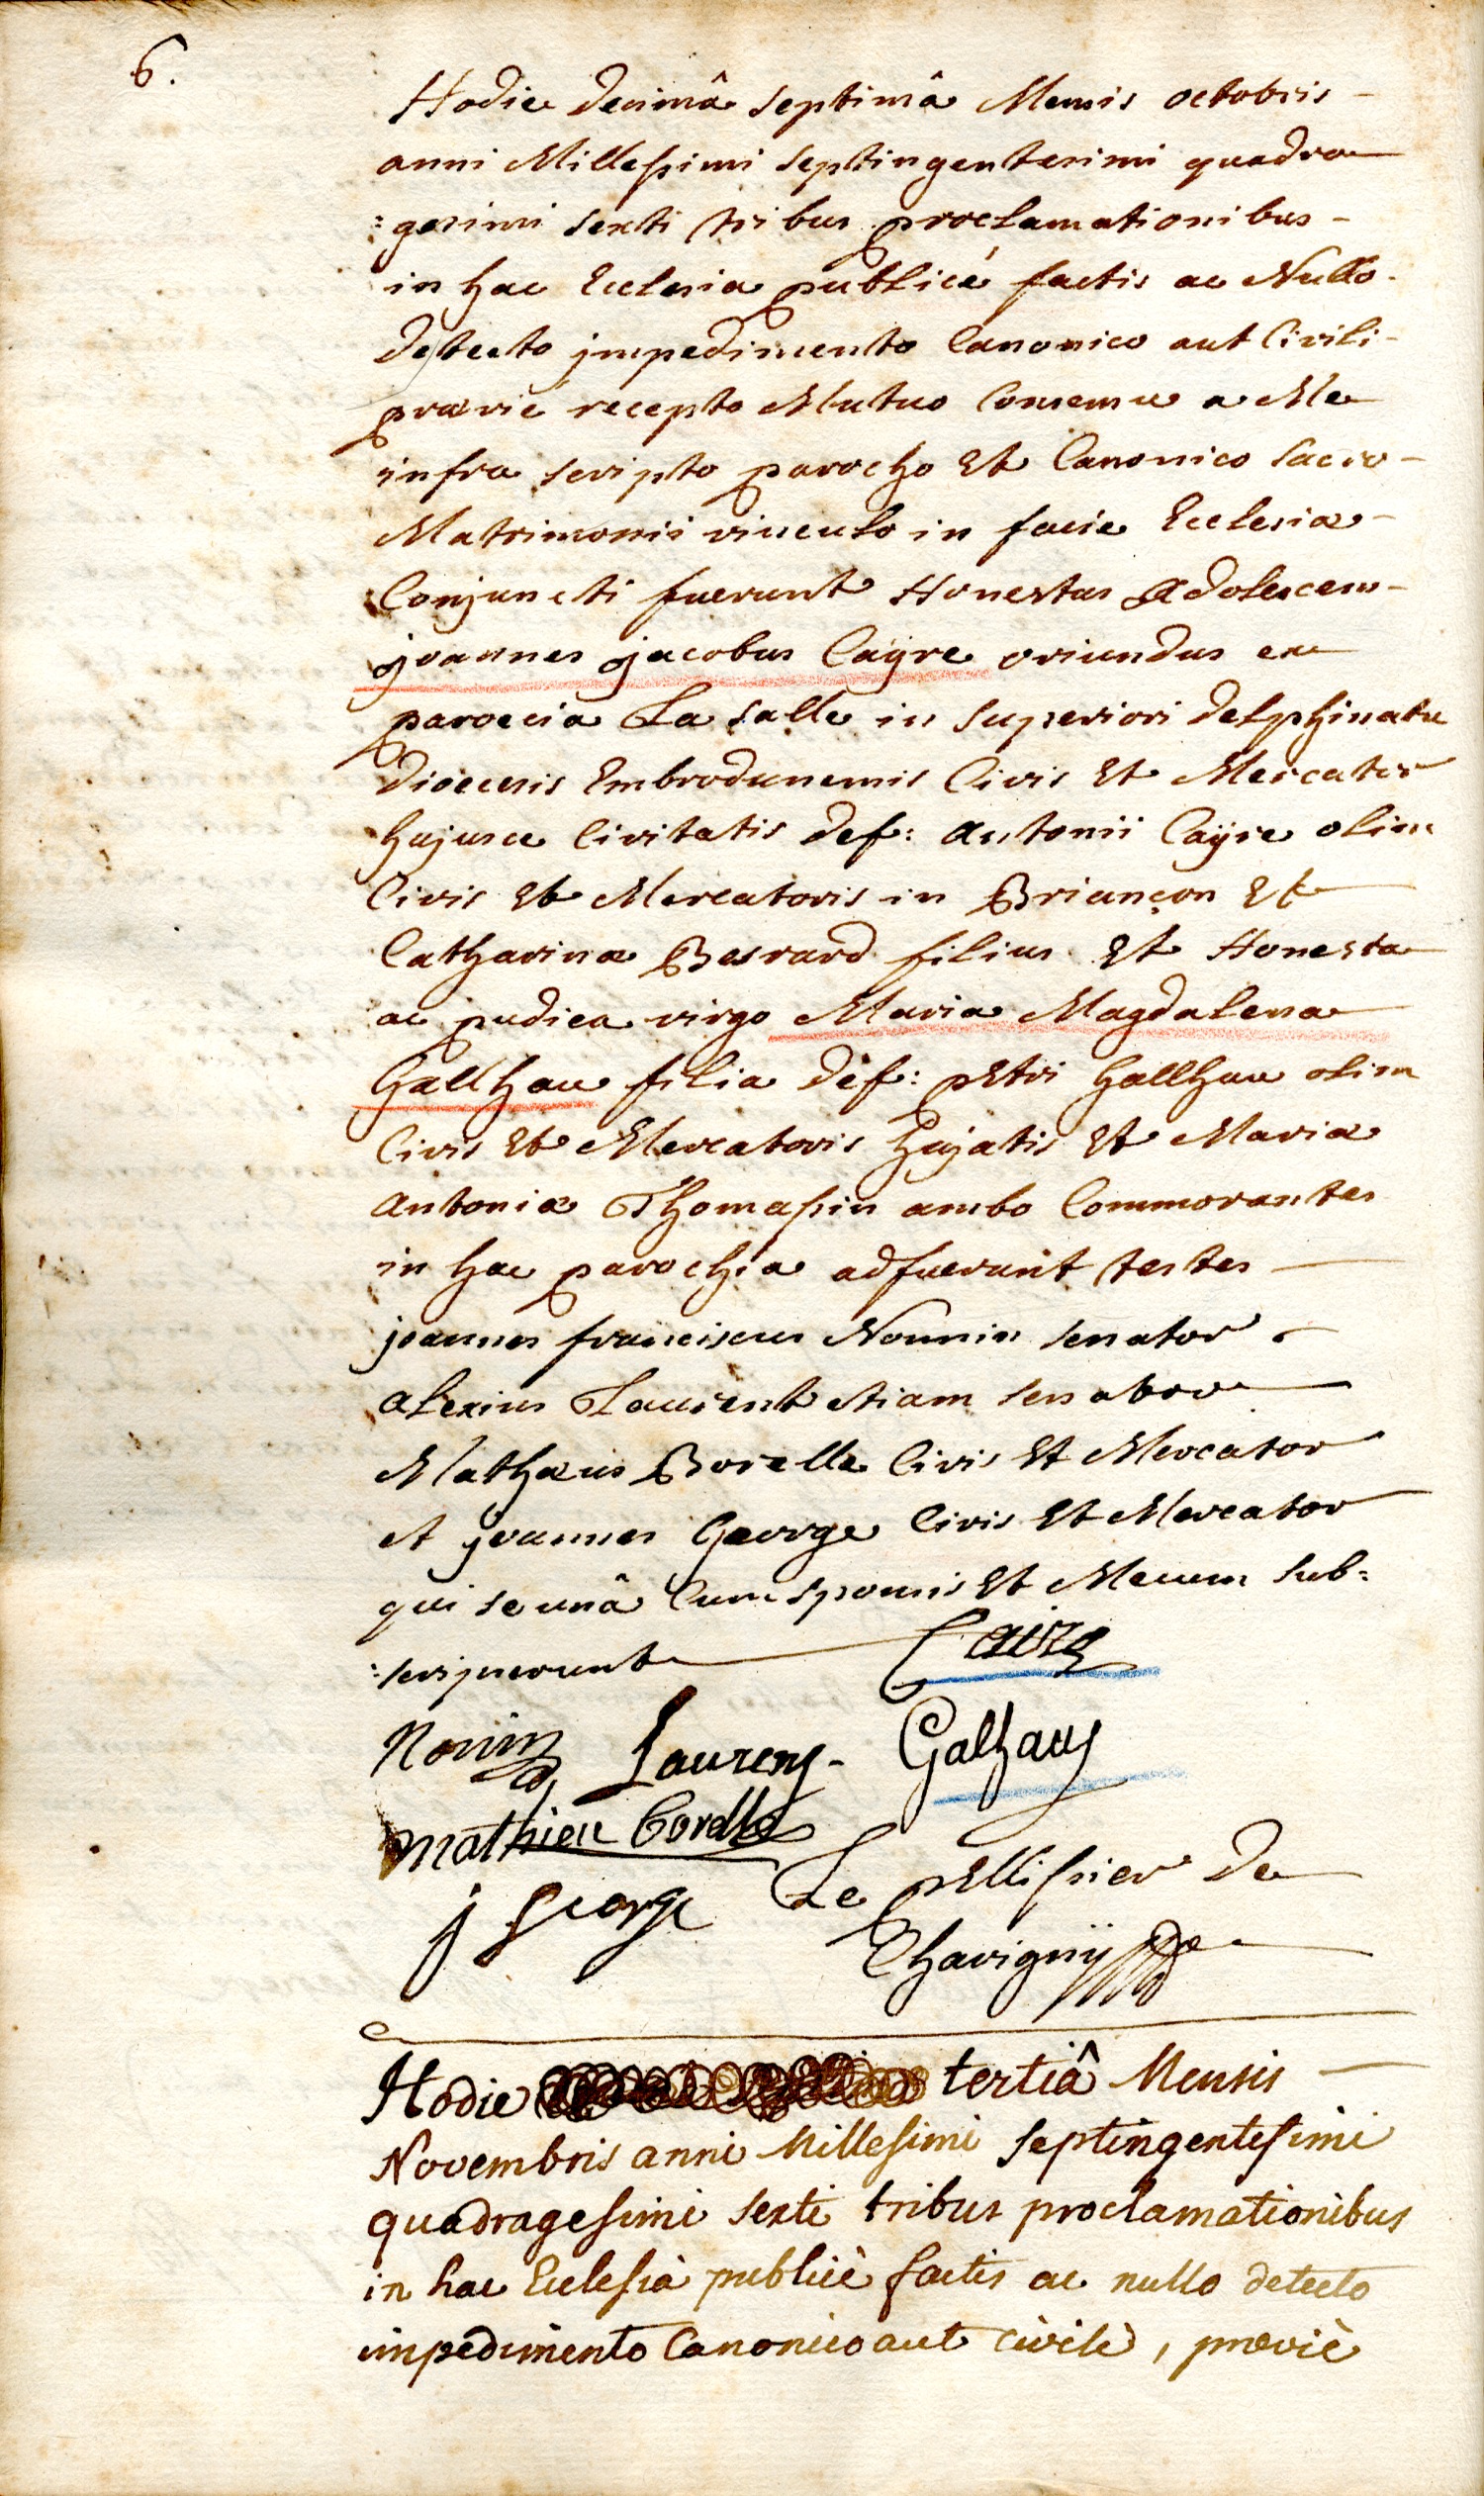 6.
Hodie decimâ septimâ Mensis octobris -
anni Millesimi septingentesimi quadra
:gesimi sexti tribus proclamationibus -
in hac Ecclesia publicé factis ac Nullo -
detecto jmpedimento Canonico aut Civili -
prævié recepto Mutuo Consensu a Me
infra scripto parocho Et Canonico sacro -
Matrimonii vinculo in facie Ecclesiæ -
Conjuncti fuerunt Honestus adolescens -
joannes jacobus Caÿre oriundus ex
paroecia La salle in superiori delphinatu
dioecesis Embrodunensis Civis Et Mercator
hujusce Civitatis def: antonii Caÿre olim
Civis Et Mercatoris in Briançon Et
Catharinæ Besrard filius Et Honesta
ac pudica virgo Maria Magdalena
Gallhau filia def: pEtri Gallhau olim
Civis Et Mercatoris hujatis Et Mariæ
antoniæ Thomassin ambo Commorantes
in hac parochia adfuerunt testes
joannes franciscus Nonnin senator
alexius Laurent etiam senator
Mathæus Borelle Civis Et Mercator
et joannes George Civis Et Mercator
qui se unâ Cum sponsis Et Mecum sub:
:scripserunt Caire
Nonin Laurens - Galhau
mathieu borelle
j George Le pEllissier de
Chavignÿ
Hodie tertiâ Mensis
Novembris anni Millesimi septingentesimi
quadragesimi sexti tribus proclamationibus
in hac Ecclesià publicè factis ac nullo detecto
impedimento Canonico aut civilè, præviè